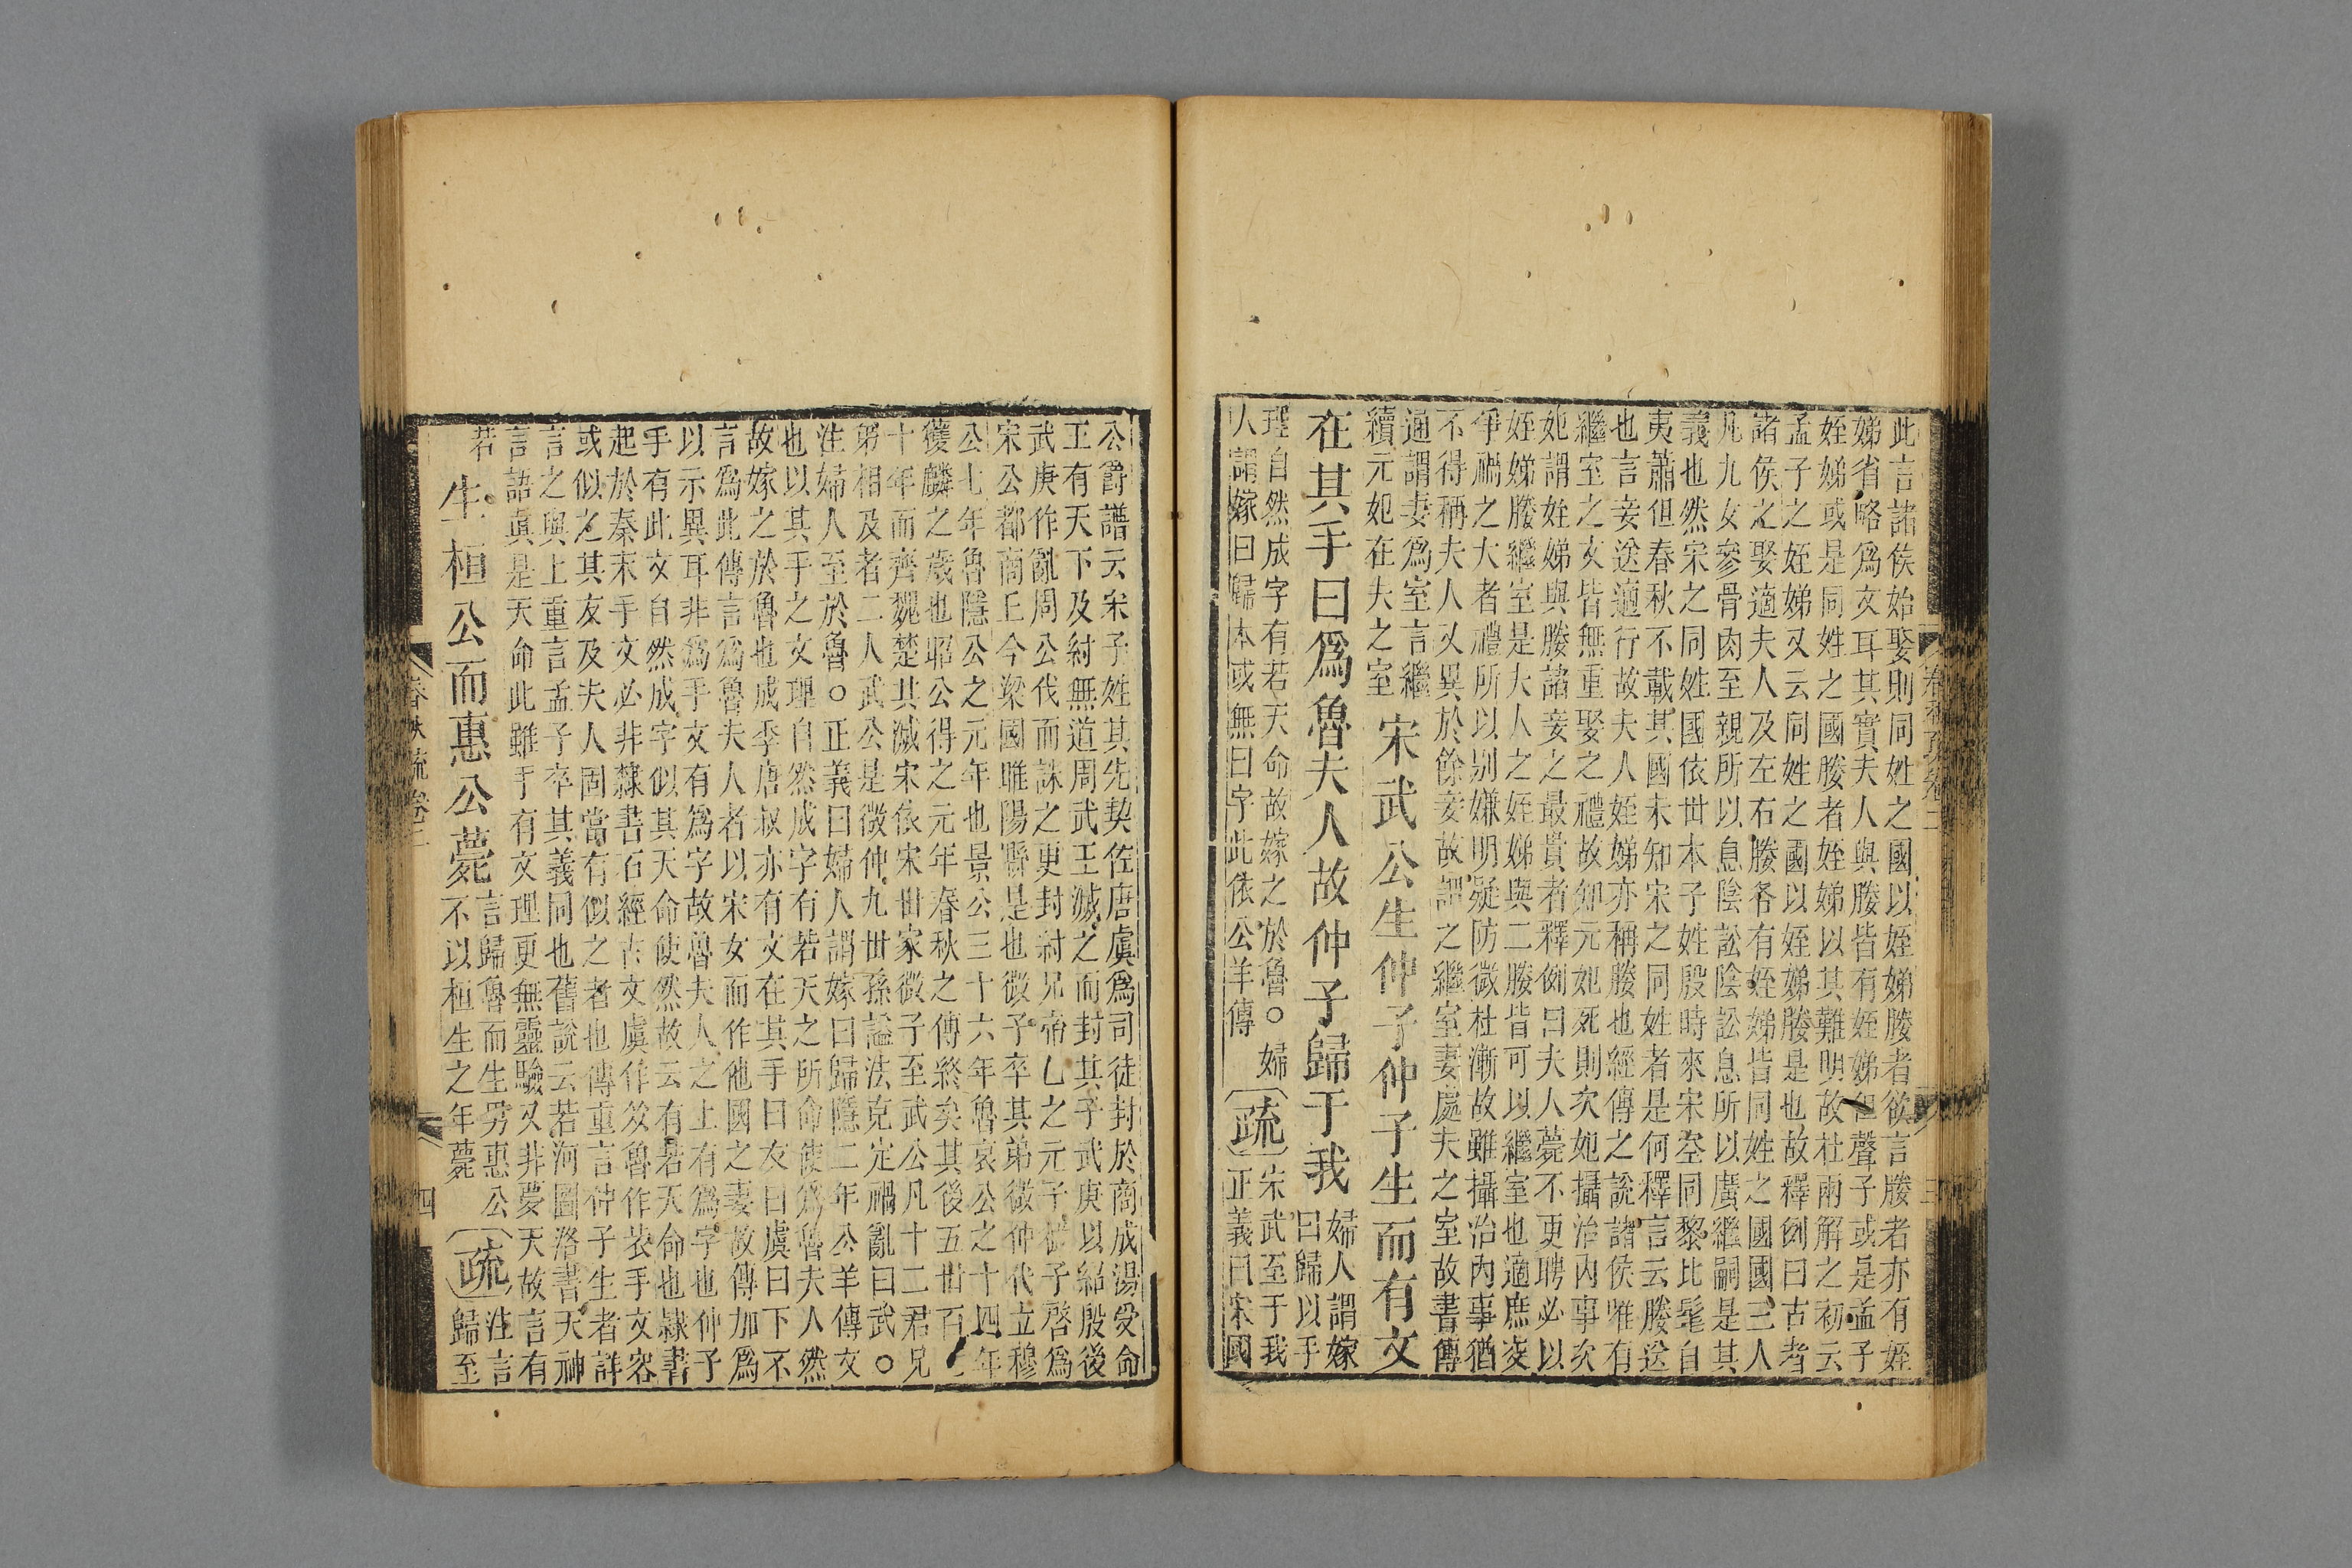 此言諸侯始娶則同姓之國以姪娣媵者欲言媵者亦有姪
娣省略爲文耳其實夫人與媵皆有姪娣但聲子或是孟子
姪娣或是同姓之國媵者姪娣以其難明故杜兩解之初云
孟子之姪娣又云同姓之國以姪娣媵是也故釋例曰古者
諸侯之娶適夫人及左右媵各有姪娣皆同姓之國國三人
凡九女參骨肉至親所以息陰訟陰訟息所以廣繼嗣是其
義也然宋之同姓國依世本子姓殷時來宋空同黎比髦自
夷蕭但春秋不載其國未知宋之同姓者是何釋言云媵送
也言妾送適行故夫人姪娣亦稱媵也經傳之說諸侯唯有
繼室之文皆無重娶之禮故知元妃死則次妃攝治內事次
妃謂姪娣與媵諸妾之最貴者釋例曰夫人薨不更聘必以
姪娣媵繼室是大人之姪娣與二媵皆可以繼室也適庶交
爭禍之大者禮所以別嫌明疑防微杜漸故雖攝治內事猶
不得稱夫人又異於餘妾故謂之繼室妻處夫之室故書傳
通謂妻爲室言繼
續元妃在夫之室
宋武公生仲子仲子生而有文
在其手曰爲魯夫人故仲子歸于我
婦人謂嫁
曰歸以手
理自然成字有若天命故嫁之於魯○婦
人謂嫁曰歸本或無曰字此依公羊傳
疏
宋武至于我
正義曰宋國
公爵譜云宋子姓其先契佐唐虞爲司徒封於商成湯受命
王有天下及紂無道周武王滅之而封其子武庚以紹殷後
武庚作亂周公伐而誅之更封紂兄帝乙之元子微子啓爲
宋公都商丘今梁國睢陽縣是也微子卒其弟微仲代立穆
公七年魯隱公之元年也景公三十六年魯哀公之十四年
獲麟之歲也昭公得之元年春秋之傳終矣其後五世百七
十年而齊魏楚共滅宋依宋世家微子至武公凡十二君兄
弟相及者二人武公是微仲九世孫謚法克定禍亂曰武○
注婦人至於魯○正義曰婦人謂嫁曰歸隱二年公羊傳文
也以其手之文理自然成字有若天之所命使爲魯夫人然
故嫁之於魯也成季唐叔亦有文在其手曰友曰虞曰下不
言爲此傳言爲魯夫人者以宋女而作他國之妻故傳加爲
以示異耳非爲手文有爲字故魯夫人之上有爲字也仲子
手有此文自然成字似其天命使然故云有若天命也隸書
起於秦末手文必非隸書石經古文虞作𡗝魯作㫺手文容
或似之其友及夫人固當有似之者也傳重言仲子生者詳
言之與上重言孟子卒其義同也舊說云若河圖洛書天神
言語眞是天命此雖手有文理更無靈驗又非夢天故言有
若
生桓公而惠公薨
言歸魯而生男惠公
不以桓生之年薨
疏
注言
歸至
春秋疏卷二
四